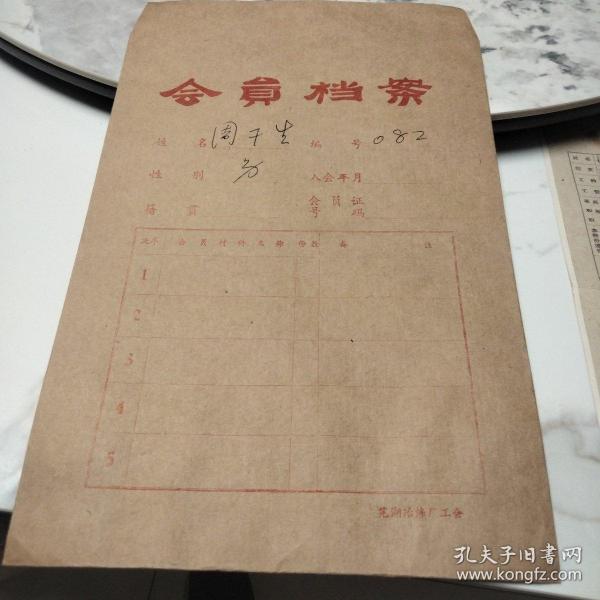 会員档案
姓名 周干生 编号 082
性别 男 入会年月
籍贯 会员证号码
次序 会员材料名称 份数 备注
1
2
3
4
5
芜湖冶炼厂工会
孔夫子旧书网
www.kongfz.com